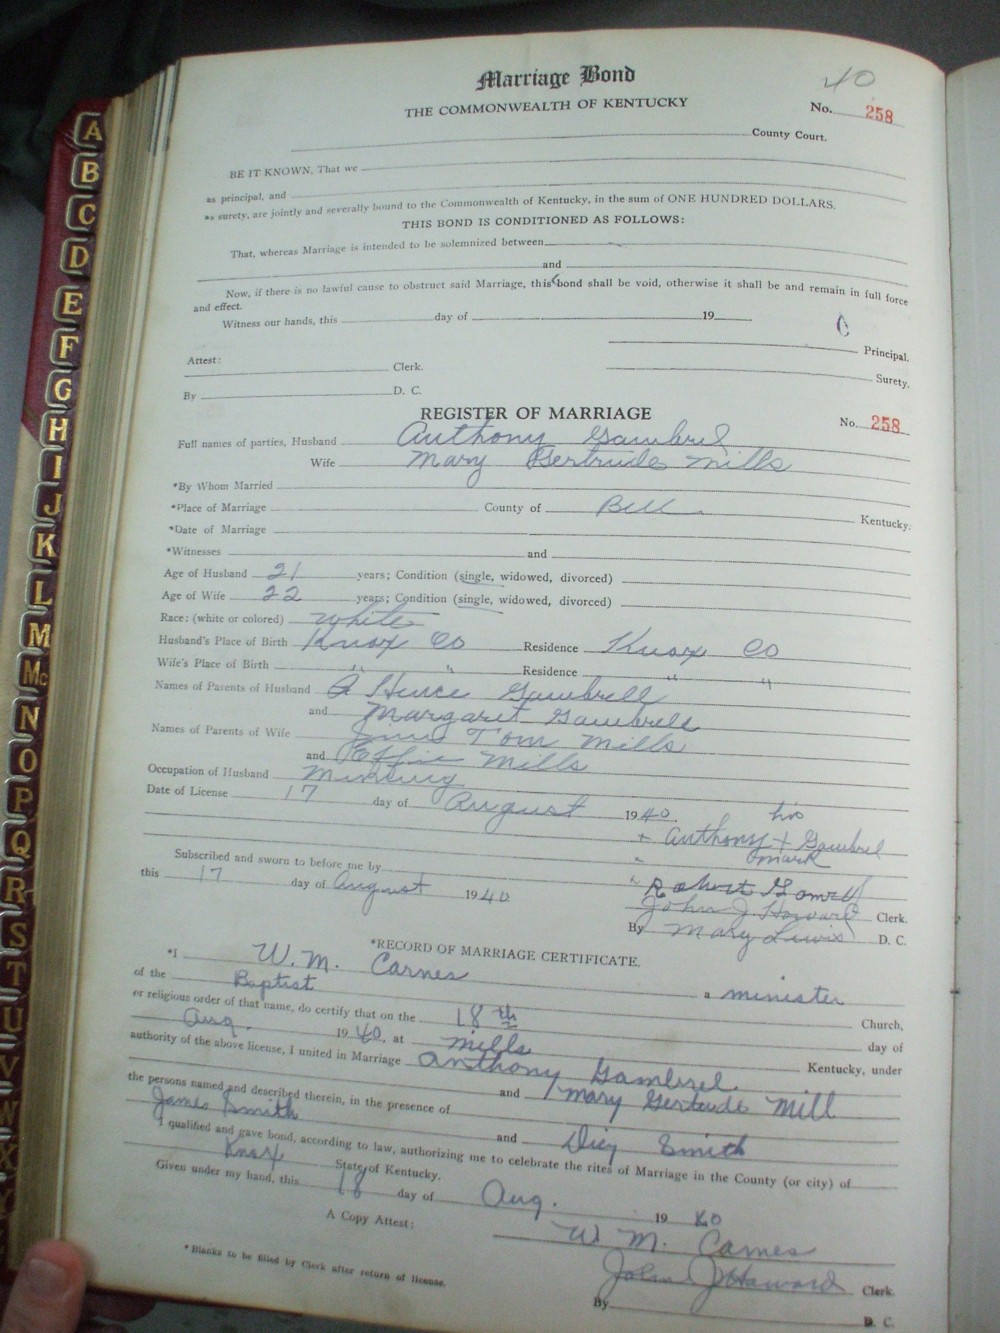 Marriage Bond
40
THE COMMONWEALTH OF KENTUCKY
No. 258
County Court.
BE IT KNOWN, That we
as principal, and
as surety, are jointly and severally bound to the Commonwealth of Kentucky, in the sum of ONE HUNDRED DOLLARS.
THIS BOND IS CONDITIONED AS FOLLOWS:
That, whereas Marriage is intended to be solemnized between
and
Now, if there is no lawful cause to obstruct said Marriage, this bond shall be void, otherwise it shall be and remain in full force
and effect.
Witness our hands, this day of 19
Principal.
Attest: Clerk.
Surety.
By D. C.
REGISTER OF MARRIAGE
No. 258
Full names of parties, Husband Anthony Gambrel
Wife Mary Gertrude Mills
*By Whom Married
*Place of Marriage County of Bell Kentucky.
*Date of Marriage
*Witnesses and
Age of Husband 21 years; Condition (single, widowed, divorced)
Age of Wife 22 years; Condition (single, widowed, divorced)
Race: (white or colored) White
Husband's Place of Birth Knox Co Residence Knox Co
Wife's Place of Birth " " Residence " "
Names of Parents of Husband Gambrell
and Margaret Gambrell
Names of Parents of Wife Tom Mills
and Effie Mills
Occupation of Husband Mining
Date of License 17 day of August 1940
his
+ Anthony + Gambrel
mark
Subscribed and sworn to before me by
this 17 day of August 1940
" Robert
John J. Howard Clerk.
By Mary Lewis D. C.
*RECORD OF MARRIAGE CERTIFICATE.
*I W. M. Carnes a minister
of the Baptist Church,
or religious order of that name, do certify that on the 18th day of
Aug. 1940, at Mills Kentucky, under
authority of the above license, I united in Marriage Anthony Gambrel
and Mary Gertrude Mill
the persons named and described therein, in the presence of
James Smith and Smith
I qualified and gave bond, according to law, authorizing me to celebrate the rites of Marriage in the County (or city) of
Knox State of Kentucky.
Given under my hand, this 18 day of Aug. 1940
W. M. Carnes
A Copy Attest:
John J Howard Clerk.
By D. C.
*Blanks to be filled by Clerk after return of license.
A
B
C
D
E
F
G
H
I
J
K
L
M
Mc
N
O
P
Q
R
S
T
U
V
W
X